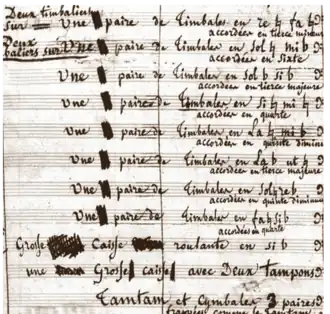 Deux timbaliers
sur Une paire de Timbales en re ♮ fa ♮
accordées en tierce mineure
Deux
baliers sur Une paire de Timbales en sol ♮ mi b
accordées en Sixte
Une paire de Timbales en sol b si b
accordées en tierce majeure
une paire de Timbales en Si ♮ mi ♮
accordées en quarte
Une paire de Timbales en La ♮ mi b
accordées en quinte diminu
Une paire de Timbales en La b ut ♮
accordées en tierce majeure
Une paire de Timbales en Sol
accordées en quinte diminuée
Une paire de Timbales en fa ♮ si b
accordées en quarte
Grosse Caisse roulante en si b
une Grosse caisse avec Deux tampons
Tamtam et Cymbales 3 paires
frappées comme le Tamtam